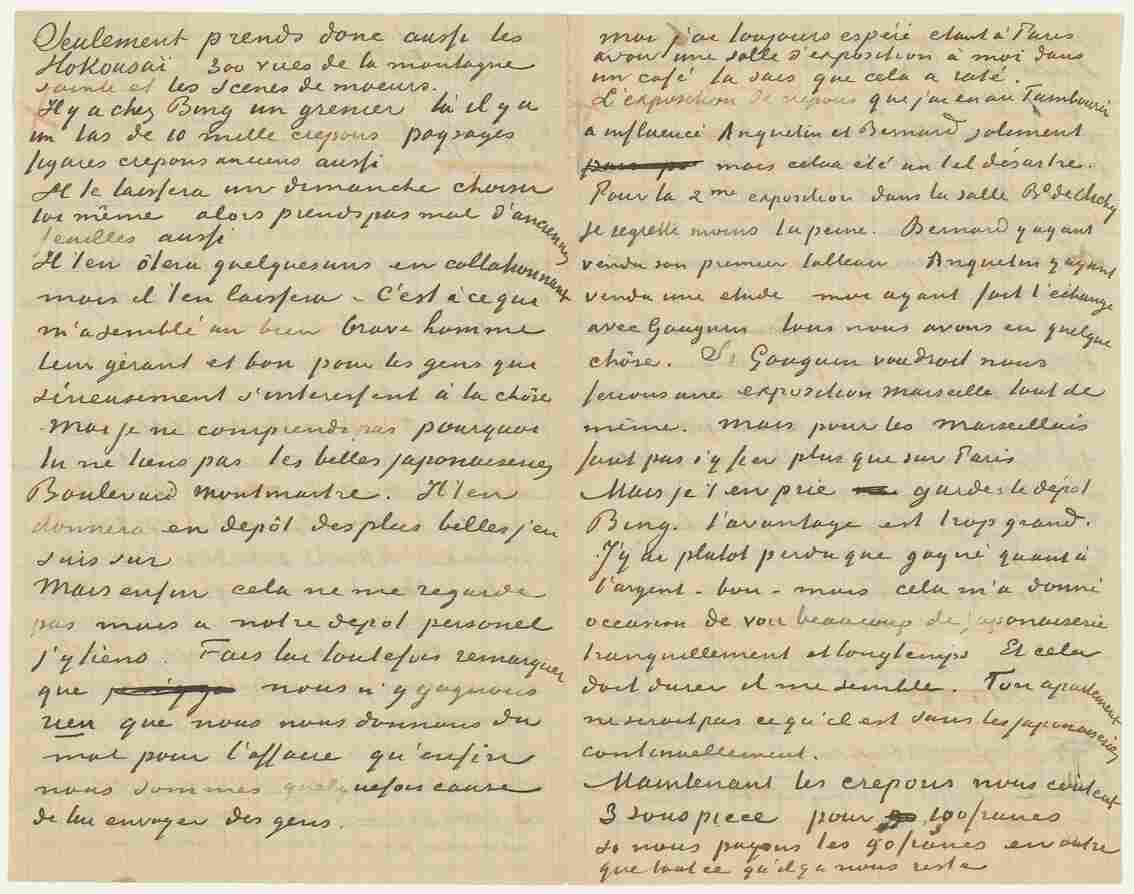 Seulement prends donc aussi les
Hokousaï 300 vues de la montagne
sainte et les scenes de moeurs.
Il y a chez Bing un grenier là il y a
un tas de 10 mille crepons paysages
figures crepons anciens aussi
Il te laissera un dimanche choisir
toi même alors prends pas mal d'anciennes
feuilles aussi
Il t'en ôtera quelquesuns en collationnant
mais il t'en laissera – C'est à ce que
m'a semblé un bien brave homme
leur gérant et bon pour les gens que
sérieusement s'interessent à la chôse
Moi je ne comprends pas pourquoi
tu ne tiens pas les belles japonaiseries
Boulevard Montmartre. Il t'en
donnera en depôt des plus belles j'en
suis sur
Mais enfin cela ne me regarde
pas mais a notre depot personel
j'y tiens. Fais lui toutefois remarquer
que nous n'y gagnons
rien que nous nous donnons du
mal pour l'affaire qu'enfin
nous sommes quelquefois cause
de lui envoyer des gens.
moi j'ai toujours espéré etant à Paris
avoir une salle d'exposition à moi dans
un café tu sais que cela a raté.
L'exposition de crepons que j'ai eu au Tambourin
a influencé Anquetin et Bernard joliment
mais cela a été un tel désastre.
Pour la 2me exposition dans la salle Bd de Clichy
je regrette moins la peine. Bernard y ayant
vendu son premier tableau Anquetin y ayant
vendu une etude moi ayant fait l'échange
avec Gauguin tous nous avons eu quelque
chôse. Si Gauguin voudrait nous
ferions une exposition Marseille tout de
même. Mais pour les Marseillais
faut pas s'y fier plus que sur Paris
Mais je t'en prie gardes le dépôt
Bing. l'avantage est trop grand.
J'y ai plutot perdu que gagné quant à
l'argent – bon – mais cela m'a donné
occasion de voir beaucoup de japonaiserie
tranquillement et longtemps Et cela
doit durer il me semble. Ton apartement
ne serait pas ce qu'il est sans les japonaiseries
continuellement.
Maintenant les crepons nous coutent
3 sous piece pour 100 francs
si nous payons les 90 francs en outre
que tout ce qu'il y a nous reste